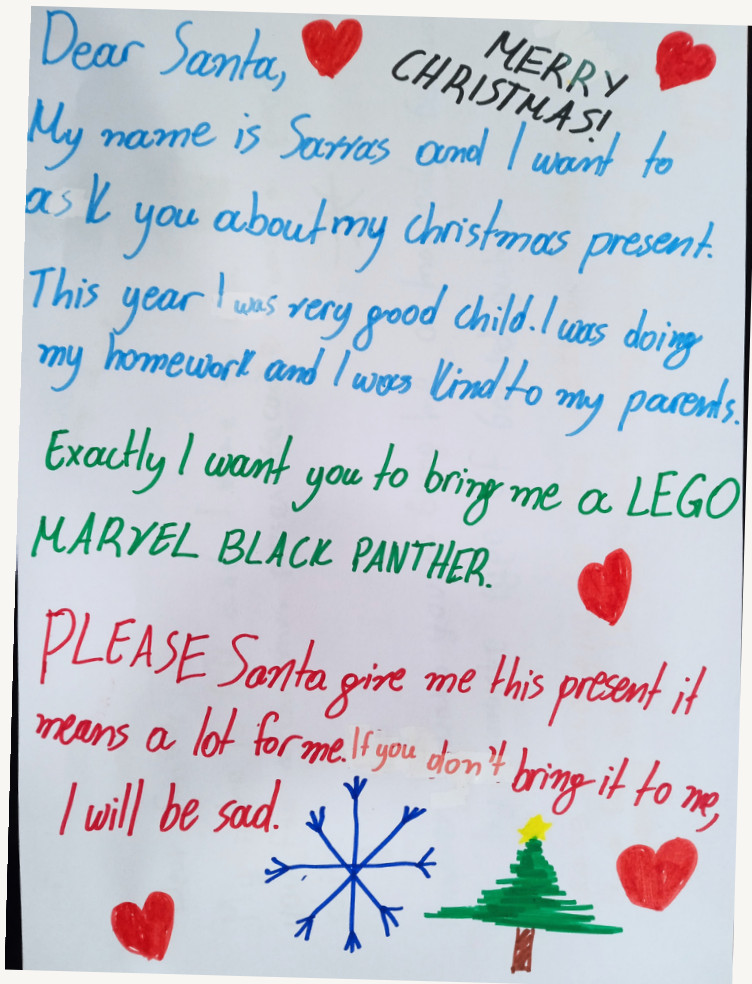 Dear Santa,
MERRY
CHRISTMAS!
My name is Sarras and I want to
ask you about my christmas present.
This year I was very good child. I was doing
my homework and I was kind to my parents.
Exactly I want you to bring me a LEGO
MARVEL BLACK PANTHER.
PLEASE Santa give me this present it
means a lot for me. If you don't bring it to me,
I will be sad.